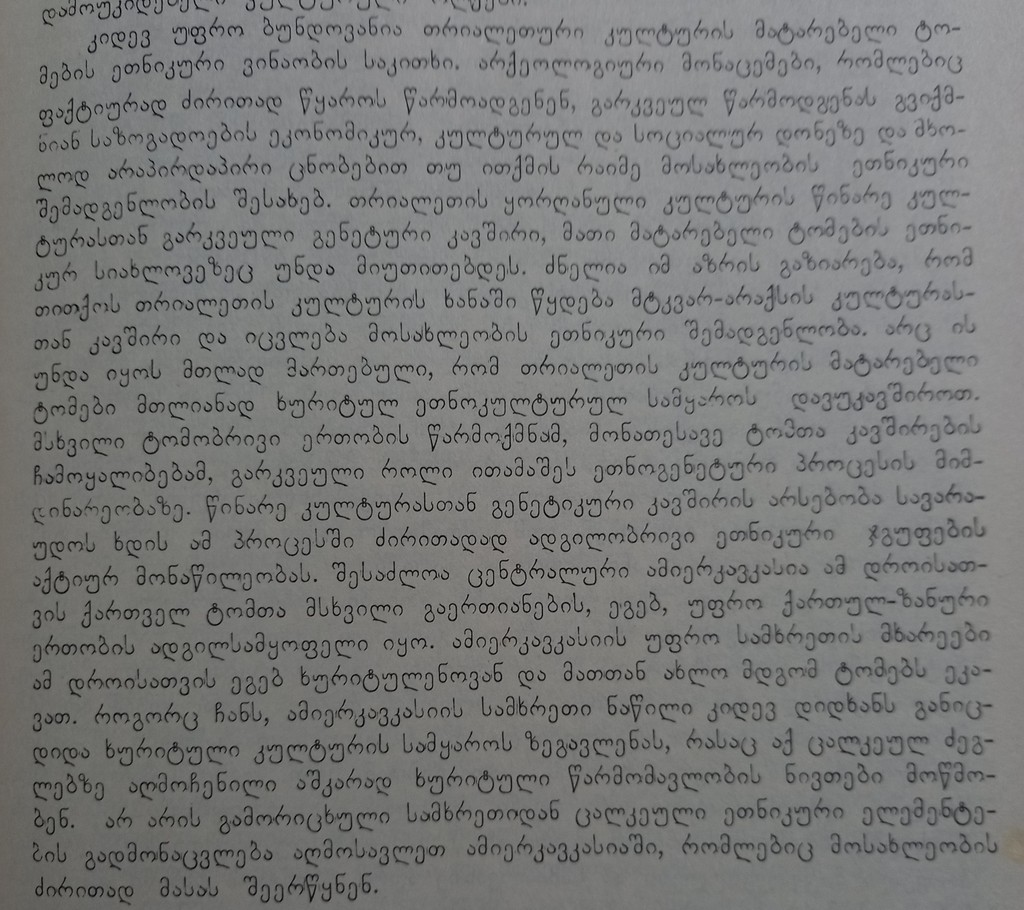 კიდევ უფრო ბუნდოვანია თრიალეთური კულტურის მატარებელი ტო-
მების ეთნიკური ვინაობის საკითხი. არქეოლოგიური მონაცემები, რომლებიც
ფაქტიურად ძირითად წყაროს წარმოადგენენ, გარკვეულ წარმოდგენას გვიქმ-
ნიან საზოგადოების ეკონომიკურ, კულტურულ და სოციალურ დონეზე და მხო-
ლოდ არაპირდაპირი ცნობებით თუ ითქმის რაიმე მოსახლეობის ეთნიკური
შემადგენლობის შესახებ. თრიალეთის ყორღანული კულტურის წინარე კულ-
ტურასთან გარკვეული გენეტური კავშირი, მათი მატარებელი ტომების ეთნი-
კურ სიახლოვეზეც უნდა მიუთითებდეს. ძნელია იმ აზრის გაზიარება, რომ
თითქოს თრიალეთის კულტურის ხანაში წყდება მტკვარ-არაქსის კულტურას-
თან კავშირი და იცვლება მოსახლეობის ეთნიკური შემადგენლობა. არც ის
უნდა იყოს მთლად მართებული, რომ თრიალეთის კულტურის მატარებელი
ტომები მთლიანად ხურიტულ ეთნოკულტურულ სამყაროს დავუკავშიროთ.
მსხვილი ტომობრივი ერთობის წარმოქმნამ, მონათესავე ტომთა კავშირების
ჩამოყალიბებამ, გარკვეული როლი ითამაშეს ეთნოგენეტური პროცესის მიმ-
დინარეობაზე. წინარე კულტურასთან გენეტიკური კავშირის არსებობა სავარა-
უდოს ხდის ამ პროცესში ძირითადად ადგილობრივი ეთნიკური ჯგუფების
აქტიურ მონაწილეობას. შესაძლოა ცენტრალური ამიერკავკასია ამ დროისათ-
ვის ქართველ ტომთა მსხვილი გაერთიანების, ეგებ, უფრო ქართულ-ზანური
ერთობის ადგილსამყოფელი იყო. ამიერკავკასიის უფრო სამხრეთის მხარეები
ამ დროისათვის ეგებ ხურიტულენოვან და მათთან ახლო მდგომ ტომებს ეკა-
ვათ. როგორც ჩანს, ამიერკავკასიის სამხრეთი ნაწილი კიდევ დიდხანს განიც-
დიდა ხურიტული კულტურის სამყაროს ზეგავლენას, რასაც აქ ცალკეულ ძეგ-
ლებზე აღმოჩენილი აშკარად ხურიტული წარმომავლობის ნივთები მოწმო-
ბენ. არ არის გამორიცხული სამხრეთიდან ცალკეული ეთნიკური ელემენტე-
ბის გადმონაცვლება აღმოსავლეთ ამიერკავკასიაში, რომლებიც მოსახლეობის
ძირითად მასას შეერწყნენ.